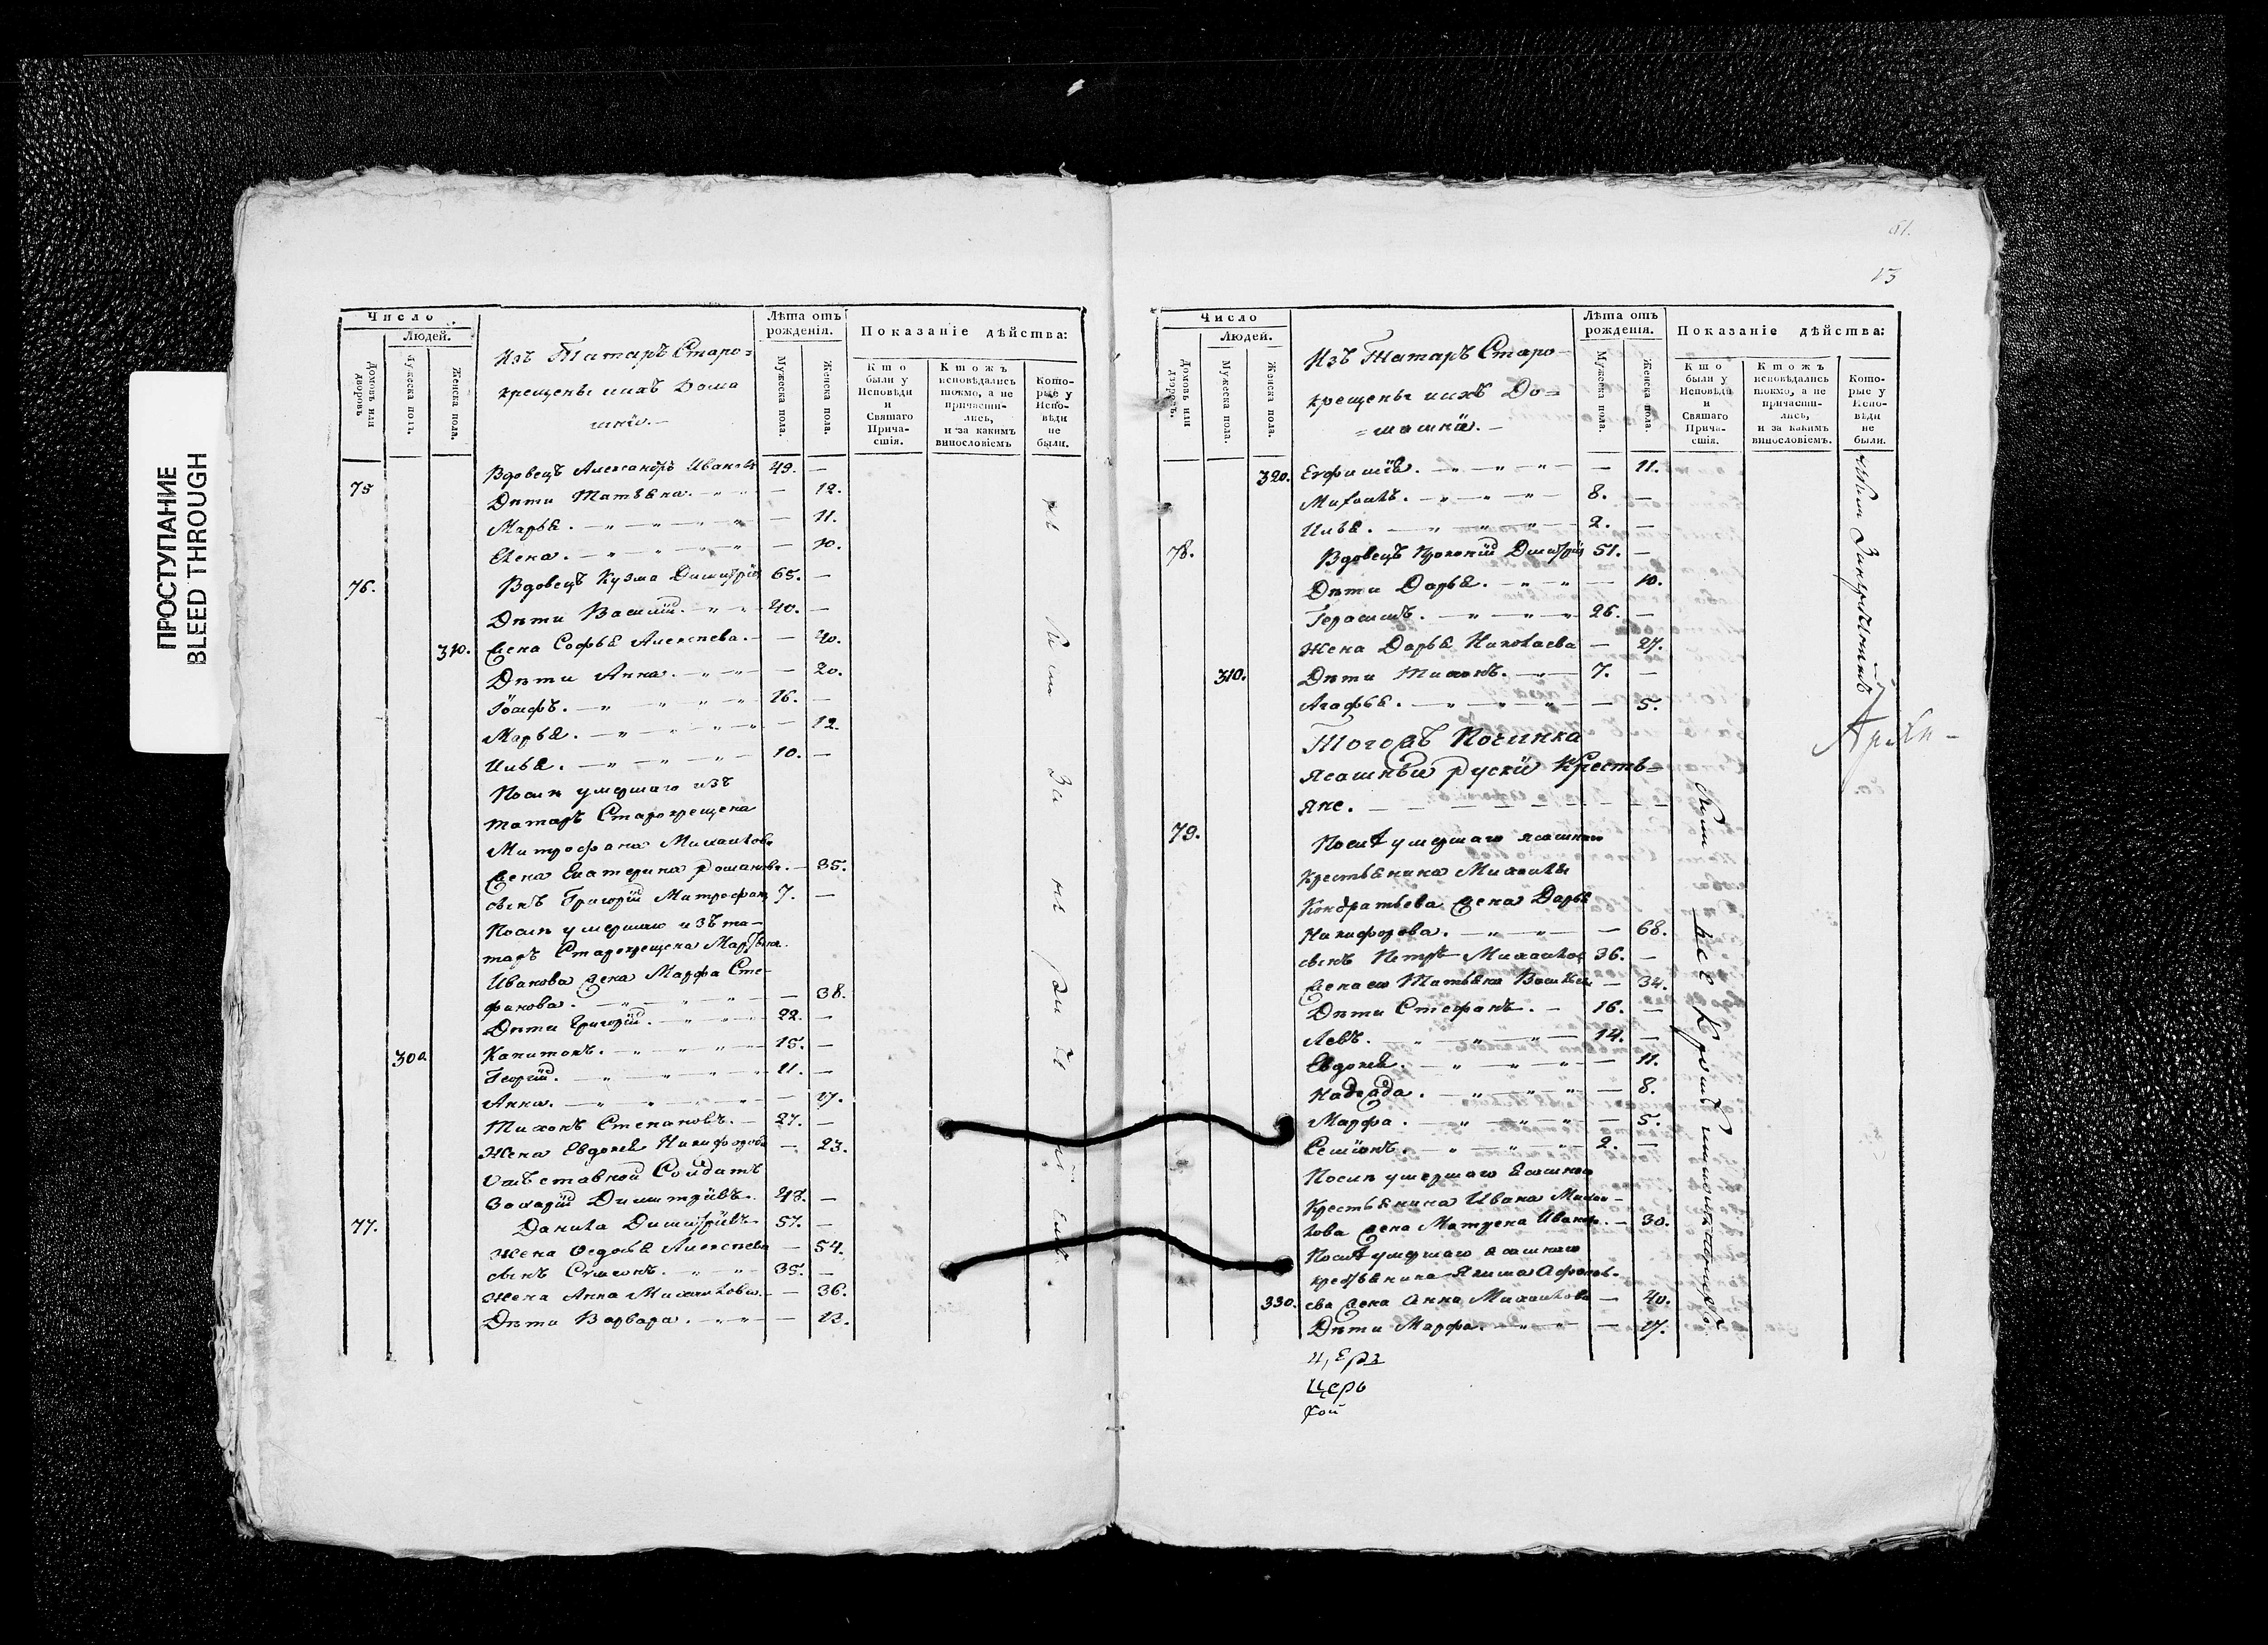 ПРОСТУПАНИЕ
BLEED THROUGH
Число
Людей.
Домовъ или дворовъ
Мужеска пола.
Женска пола.
Изъ Татаръ Старо=
крещеныхъ Дома
шнiи.
Лѣта отъ рожденiя.
Мужеска пола.
Женска пола.
Показанiе дѣйства:
Кто были у Исповѣди и Святаго Прича-стiя.
Ктожъ исповѣдались токмо, а не причасти-лись, и за какимъ винословiемъ
Кото-рые у Испо-вѣди не были.
Вдовецъ Александръ Ивановъ 49. —
75 Дѣти Татьяна. — 12.
Марья. — 11.
Елена. — 10.
76. Вдовецъ Кузма Димитрiев 65. —
Дѣти Василiй. 40. —
310. Жена Софья Алексѣева. — 40.
Дѣти Анна. — 20.
Iосифъ. 16. —
Марья. — 12.
Илья. 10. —
Послѣ умершаго изъ
татаръ Старокрещена
Митрофана Михайлова
жена Екатерина Романова. — 35.
сынъ Григорiй Митрофан 7. —
Послѣ умершаго изъ та-
таръ Старокрещена Мартына
Иванова жена Марфа Сте-
фанова. — 38.
Дѣти Григорiй. 22. —
300. Капитонъ. 15. —
Георгiй. 11. —
Анна. — 17.
Тихонъ Степановъ. 27. —
Жена Евдокея Никифорова — 23.
Солдатъ
Захарiй Димитрiевъ. 48. —
77. Данила Димитрiевъ 57. —
Жена Федосья Алексѣева — 54.
сынъ Симеонъ. 35. —
Жена Анна Михайлова. — 36.
Дѣти Варвара. — 13.
61.
13
Число
Людей.
Домовъ или дворовъ.
Мужеска пола.
Женска пола.
Изъ Татаръ Старо-
крещеныхъ До=
=машнiи.
Лѣта отъ рожденiя.
Мужеска пола.
Женска пола.
Показанiе дѣйства:
Кто были у Исповѣди и Святаго Прича-стiя.
Ктожъ исповѣдались токмо, а не причасти-лись, и за какимъ винословiемъ.
Кото-рые у Испо-вѣди не были.
320. Евфимiя. — 11.
Михаилъ. 8. —
Илья. 2. —
78. Вдовецъ Прокопiй Димитрiев 51. —
Дѣти Дарья. — 10.
Герасимъ. 26. —
Жена Дарья Николаева — 27.
310. Дѣти Тихонъ. 7. —
Агафья. — 5.
Тогожъ Починка
Ясашныи руски Кресть=
яне.
79. Послѣ умершаго ясашнаго
Крестьянина Михайлы
Кондратьева жена Дарья
Никифорова. — 68.
сынъ Петръ Михайлов 36. —
жена его Татьяна Васильев — 34.
Дѣти Стефанъ. 16. —
Левъ. 14. —
Евдокея. — 11.
Надежда. — 8.
Марфа. — 5.
Семiонъ. 2. —
Послѣ умершаго ясашнаго
Крестьянина Ивана Михай-
лова жена Матрена Иванов. — 30.
Послѣ умершаго ясашнаго
крестьянина Якима Афонась-
330. ева жена Анна Михайлова — 40.
Дѣти Марфа. — 17.
Церь
кой